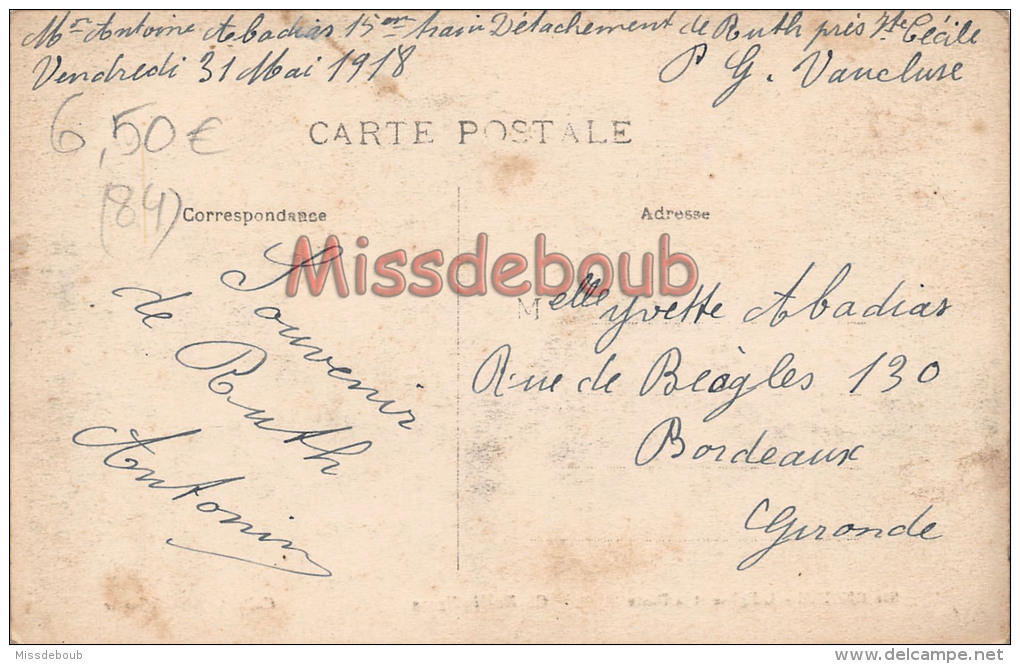 Mr Antoine Abadias 15em train Détachement de Ruth près Ste Cécile
Vendredi 31 Mai 1918 P G. Vaucluse
6,50€
CARTE POSTALE
(84)
Correspondance
Adresse
Missdeboub
Souvenir
de Ruth
Antonin
Melle Yvette Abadias
Rue de Bègles 130
Bordeaux
Gironde
Missdeboub
www.delcampe.net